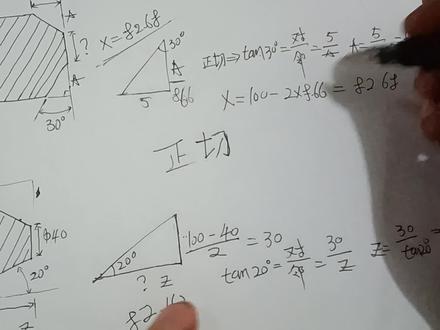 A
?
A
30°
X=8268
30°
A
5
866
正切⇒tan30°=对/邻=5/A A=5
X=100-2×8.66=8268
正切
φ40
20°
20°
?
Z
100-40/2=30
tan20°=对/邻=30/Z Z=30/tan20°=